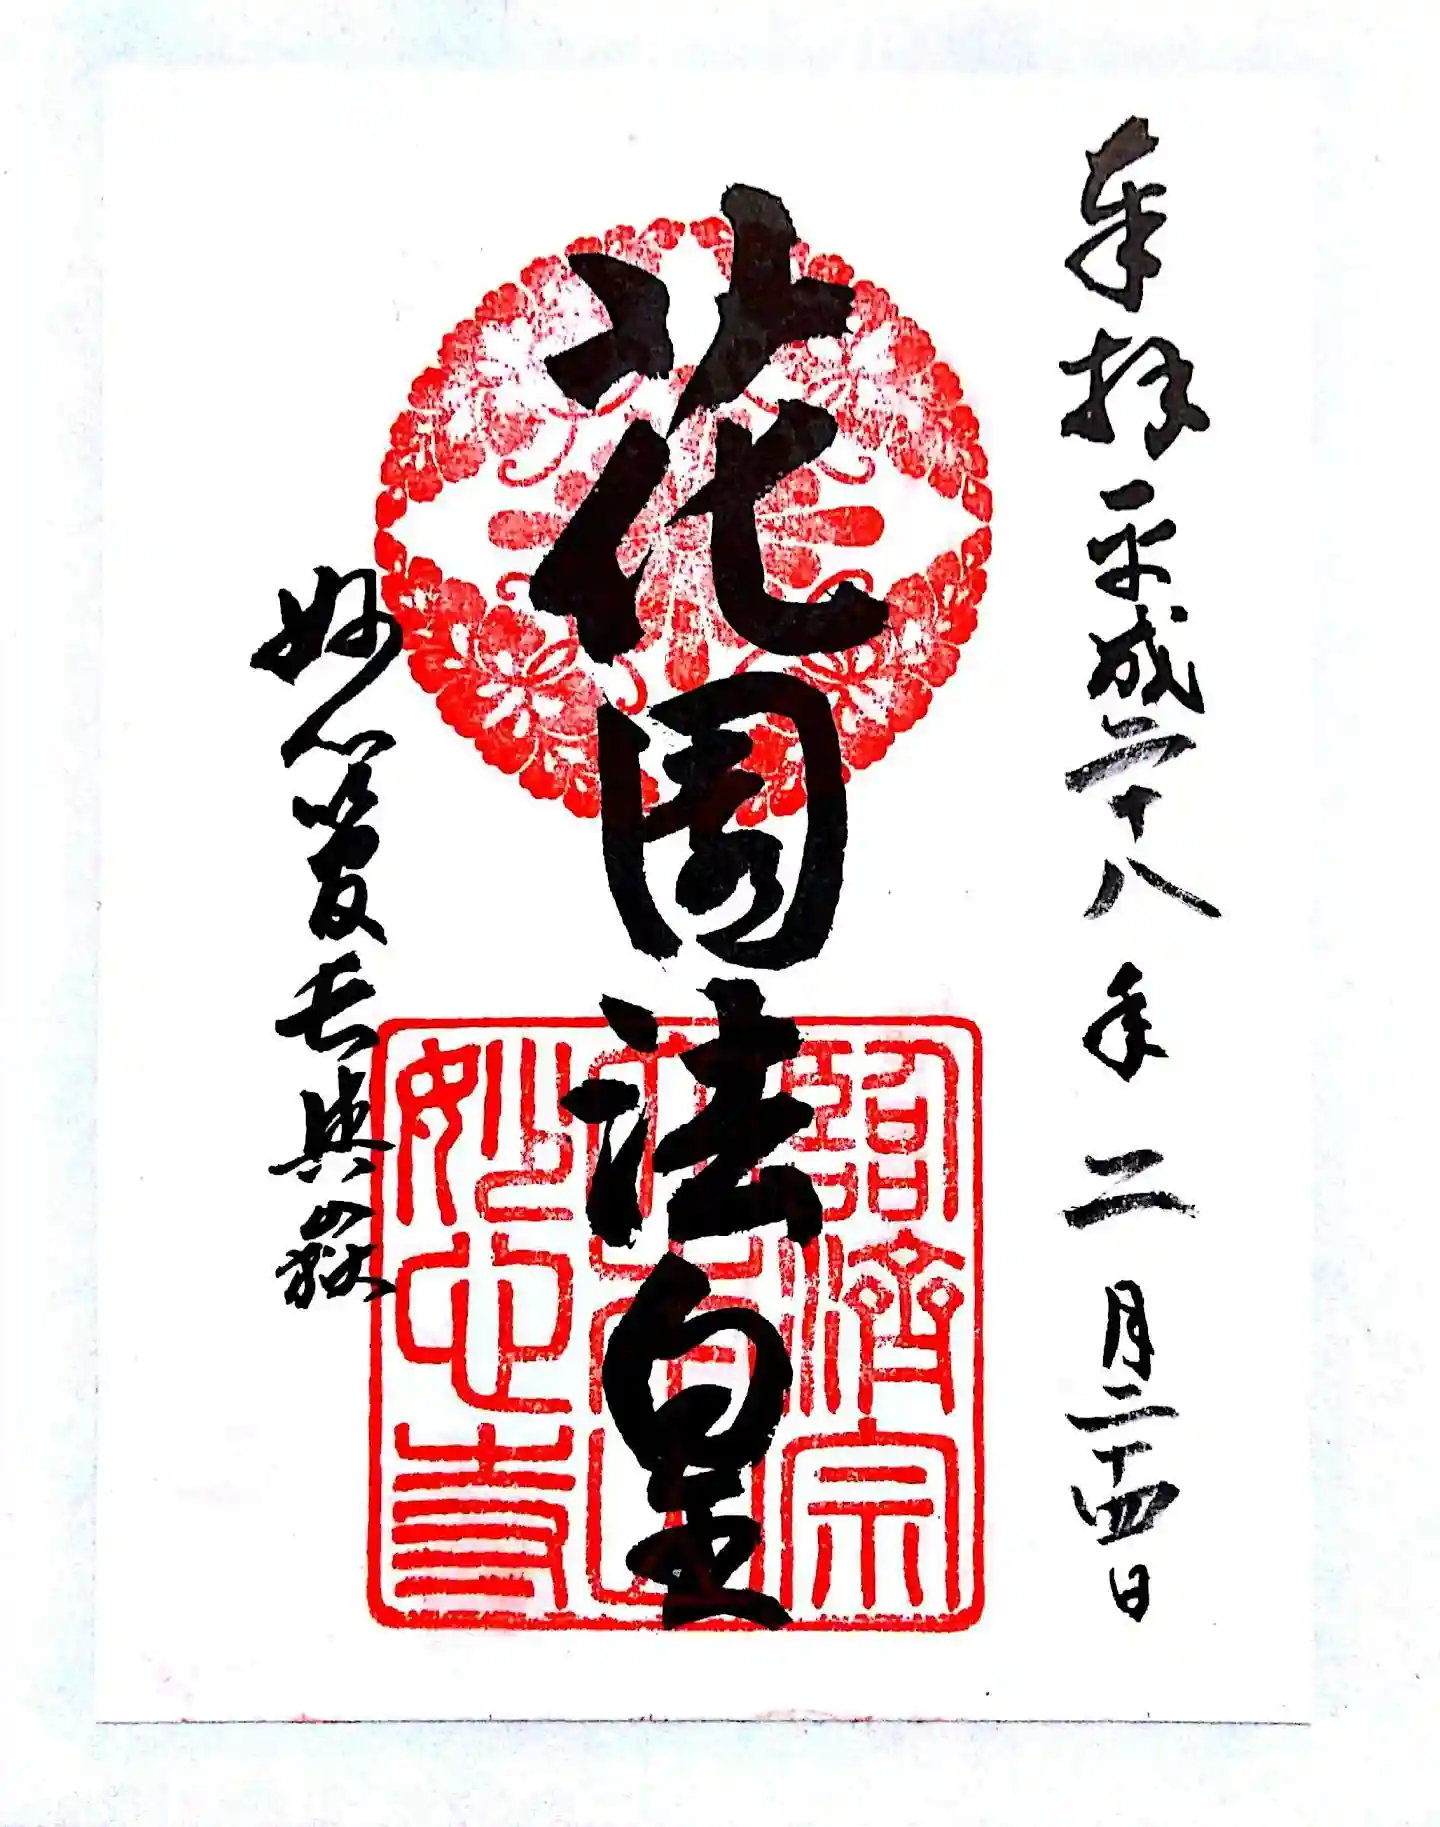 奉拝 平成二十八年二月二十四日
花園法皇
妙心管長興嶽
臨濟宗
大本山
妙心寺